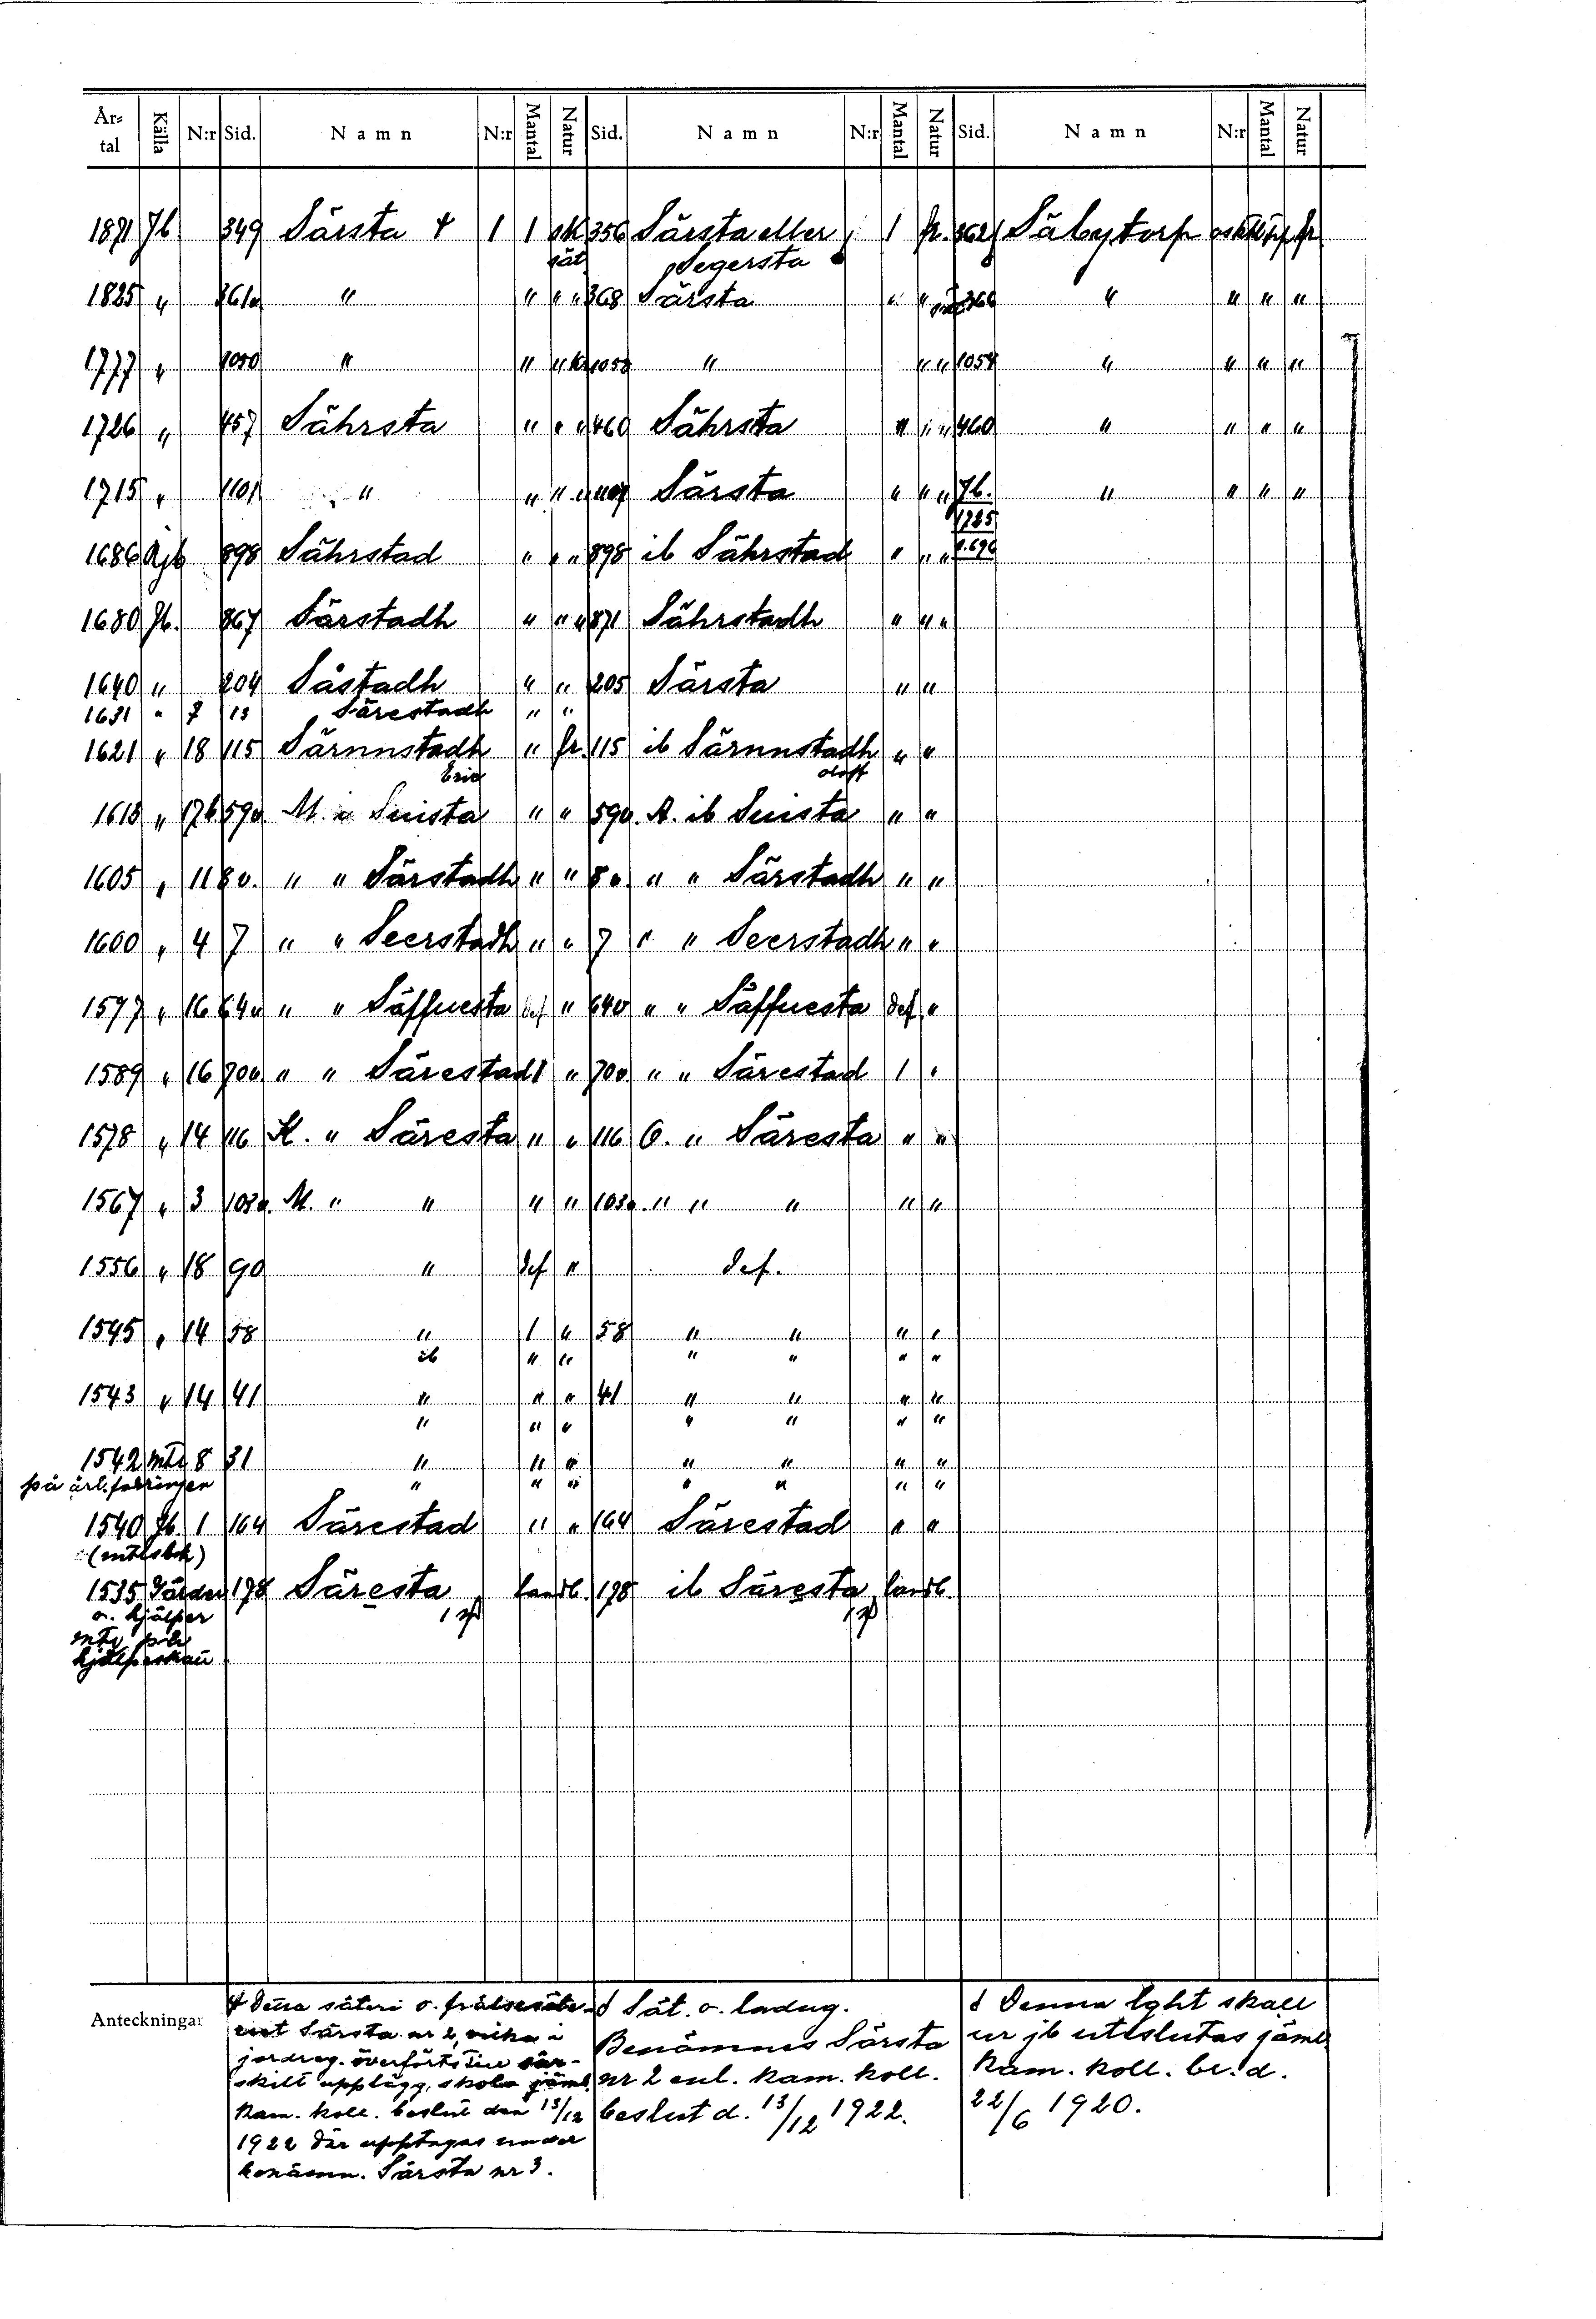 År-tal Källa N:r Sid. Namn N:r Mantal Natur Sid. Namn N:r Mantal Natur Sid. Namn N:r Mantal Natur
1871 Jb 349 Särsta 1 1 sk 356 Särsta eller 1 fr. Säbytorp fr
sät Segersta
1825 " 361a " " " " 368 Särsta " " 369 " " " "
1777 " 1050 " " " kr 1053 " " " 1054 " " " "
1726 " 457 Sährsta " " " 460 Sährsta " " " 460 " " " "
1715 " 1101 " " " " 1107 Särsta " " " Jb. " " " "
1725
1686 Ajb 898 Sährstad " " " 898 ib Sährstad " " " s. 690
1680 Jb. 867 Särstadh " " " 871 Sährstadh " " "
1640 " 204 Såstadh " " 205 Särsta " "
1631 " 7 13 Särestadh " "
1621 " 18 115 Särnnstadh " fr. 115 ib Särnnstadh " "
Eric oloff
1613 " 17b 590 M. i Suista " " 590. A. ib Suista " "
1605 " 11 80. " " Särstadh " " 80. " " Särstadh " "
1600 " 4 7 " " Seerstadh " " 7 " " Seerstadh " "
1597 " 16 64v " " Säffuesta def " 64v " " Säffuesta def "
1589 " 16 70v " " Särestad 1 " 70v " " Särestad 1 "
1578 " 14 116 K. " Säresta " " 116 O. " Säresta " "
1567 " 3 103v. M. " " " " 103v. " " " " "
1556 " 18 90 " def " def.
1545 " 14 58 " 1 " 58 " " " "
ib " " " " " "
1543 " 14 41 " " " 41 " " " "
" " " " " " "
1542 Mtl 8 31 " " " " " " "
på ärl. " " " " " " "
1540 Jb. 1 164 Särestad " " 164 Särestad " "
(mtlsbok)
1535 Gärder 178 Säresta landb. 178 ib Säresta landb.
o. hjälper
Anteckningar
Dena säteri o. frälsesäte-
riet Särsta nr 2, vilka i
jordreg. överförts till sär-
skilt upplägg, skola jäml.
Kam. koll. beslut den 13/12
1922 där upptagas under
benämn. Särsta nr 3.
Sät. o. ladug.
Benämnes Särsta
nr 2 enl. kam. koll.
beslut d. 13/12 1922.
Denna lght skall
ur jb uteslutas jäml.
Kam. koll. be. d.
22/6 1920.